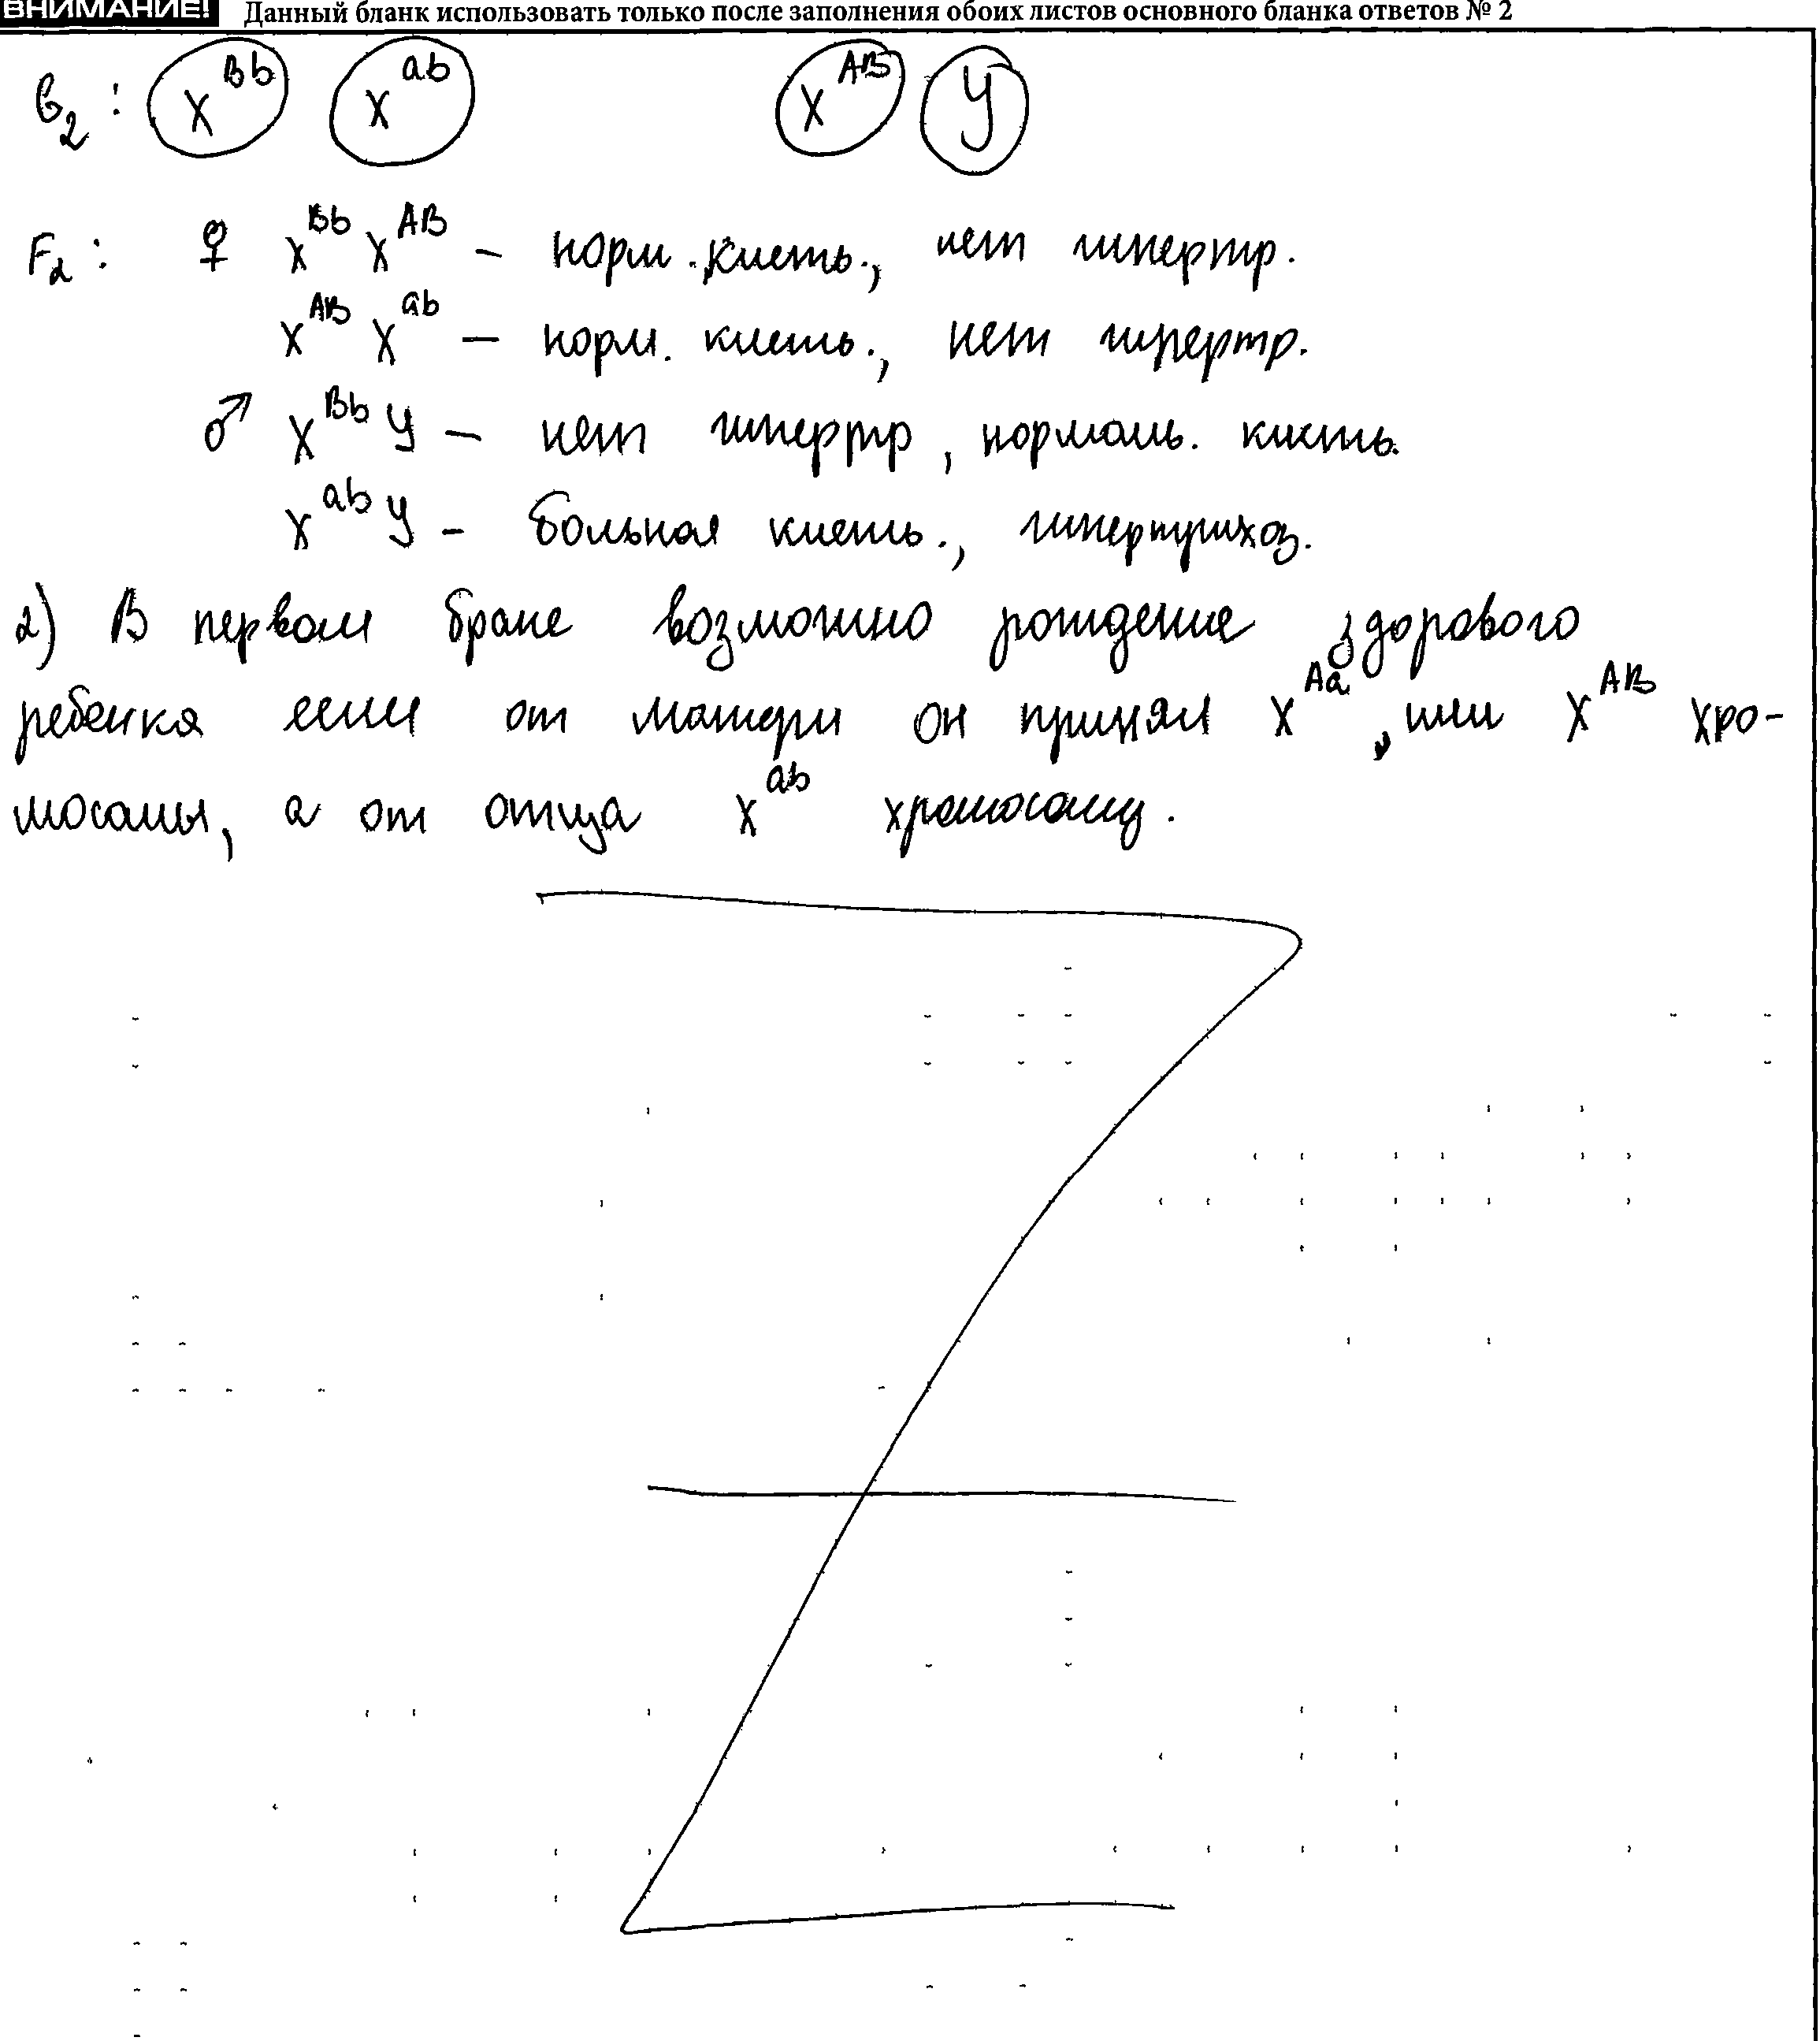 ВНИМАНИЕ! Данный бланк использовать только после заполнения обоих листов основного бланка ответов № 2
G₂ : X^Bb X^ab X^AB У
F₂ : ♀ X^Bb X^AB – норм. кисть., нет гипертр.
X^AB X^ab – норм. кисть., нет гипертр.
♂ X^Bb У – нет гипертр, нормаль. кисть.
X^ab У – больная кисть., гипертрихоз.
2) В первом браке возможно рождение здорового
ребенка если от матери он принял X^Aa, или X^AB хро-
мосомы, а от отца X^ab хромосому.